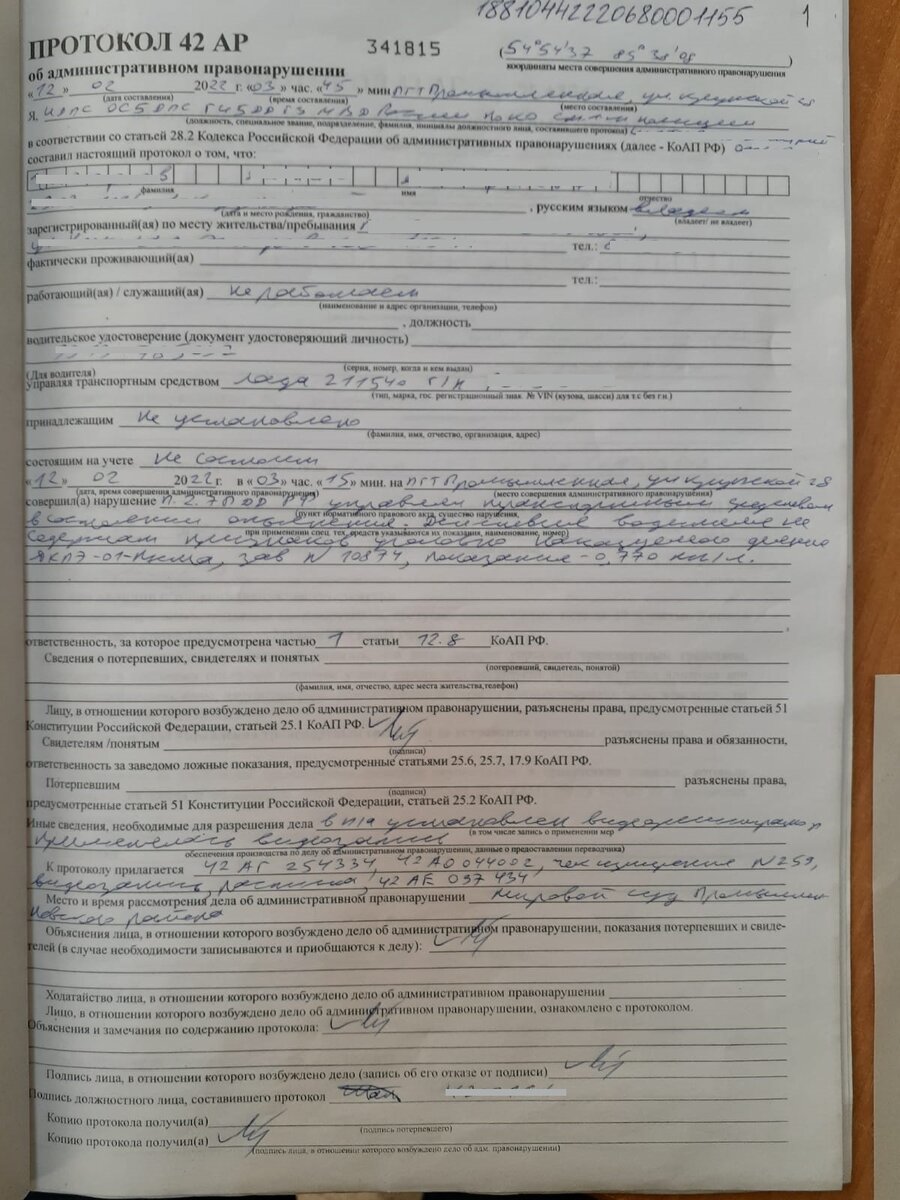 18810442220680001155
1
ПРОТОКОЛ 42 АР 341815
об административном правонарушении
координаты места совершения административного правонарушения
«12» 02 2022 г. «03» час. «45» мин ПГТ Промышленная, ул
(дата составления) (время составления) (место составления)
Я, ИДПС ОСБ ДПС ГИБДД ГУ МВД России по КО
(должность, специальное звание, подразделение, фамилия, инициалы должностного лица, составившего протокол)
в соответствии со статьей 28.2 Кодекса Российской Федерации об административных правонарушениях (далее - КоАП РФ)
составил настоящий протокол о том, что:
фамилия имя отчество
, русским языком владеет
(дата и место рождения, гражданство) (владеет/ не владеет)
зарегистрированный(ая) по месту жительства/пребывания
тел.:
фактически проживающий(ая)
тел.:
работающий(ая) / служащий(ая) Не работает
(наименование и адрес организации, телефон)
, должность
водительское удостоверение (документ удостоверяющий личность)
(серия, номер, когда и кем выдан)
(Для водителя)
управляя транспортным средством Лада 211540 г/н
(тип, марка, гос. регистрационный знак. № VIN (кузова, шасси) для т.с без г.н.)
принадлежащим Не установлено
(фамилия, имя, отчество, организация, адрес)
состоящим на учете Не состоит
«12» 02 2022 г. в «03» час. «15» мин. на ПГТ Промышленная, ул
(дата, время совершения административного правонарушения) (место совершения административного правонарушения)
совершил(а) нарушение П. 2.7 ПДД РФ управлял транспортным средством
(пункт нормативного правового акта, существо нарушения,
в состоянии опьянения. Действия водителя не
при применении спец. тех. средств указываются их показания, наименование, номер)
содержат признаков уголовно наказуемого деяния
АКПЭ-01-, зав N 10874, показания - 0,770 мг/л.
ответственность, за которое предусмотрена частью 1 статьи 12.8 КоАП РФ.
Сведения о потерпевших, свидетелях и понятых
(потерпевший, свидетель, понятой)
(фамилия, имя, отчество, адрес места жительства,телефон)
Лицу, в отношении которого возбуждено дело об административном правонарушении, разъяснены права, предусмотренные статьей 51
Конституции Российской Федерации, статьей 25.1 КоАП РФ.
Свидетелям /понятым разъяснены права и обязанности,
(подписи)
ответственность за заведомо ложные показания, предусмотренные статьями 25.6, 25.7, 17.9 КоАП РФ.
Потерпевшим разъяснены права,
(подписи)
предусмотренные статьей 51 Конституции Российской Федерации, статьей 25.2 КоАП РФ.
Иные сведения, необходимые для разрешения дела в п/а установлен видеорегистратор
(в том числе запись о применении мер
применялась видеозапись
обеспечения производства по делу об административном правонарушении, данные о предоставлении переводчика)
К протоколу прилагается 42 АГ 254334, 42 АО 044002, чек N 259,
видеозапись, расписка, 42 АЕ 037434
Место и время рассмотрения дела об административном правонарушении мировой суд Промышлен-
новского района
Объяснения лица, в отношении которого возбуждено дело об административном правонарушении, показания потерпевших и свиде-
телей (в случае необходимости записываются и приобщаются к делу):
Ходатайство лица, в отношении которого возбуждено дело об административном правонарушении
Лицо, в отношении которого возбуждено дело об административном правонарушении, ознакомлено с протоколом.
Объяснения и замечания по содержанию протокола:
Подпись лица, в отношении которого возбуждено дело (запись об его отказе от подписи)
Подпись должностного лица, составившего протокол
Копию протокола получил(а)
(подпись потерпевшего)
Копию протокола получил(а)
(подпись лица, в отношении которого возбуждено дело об адм. правонарушении)